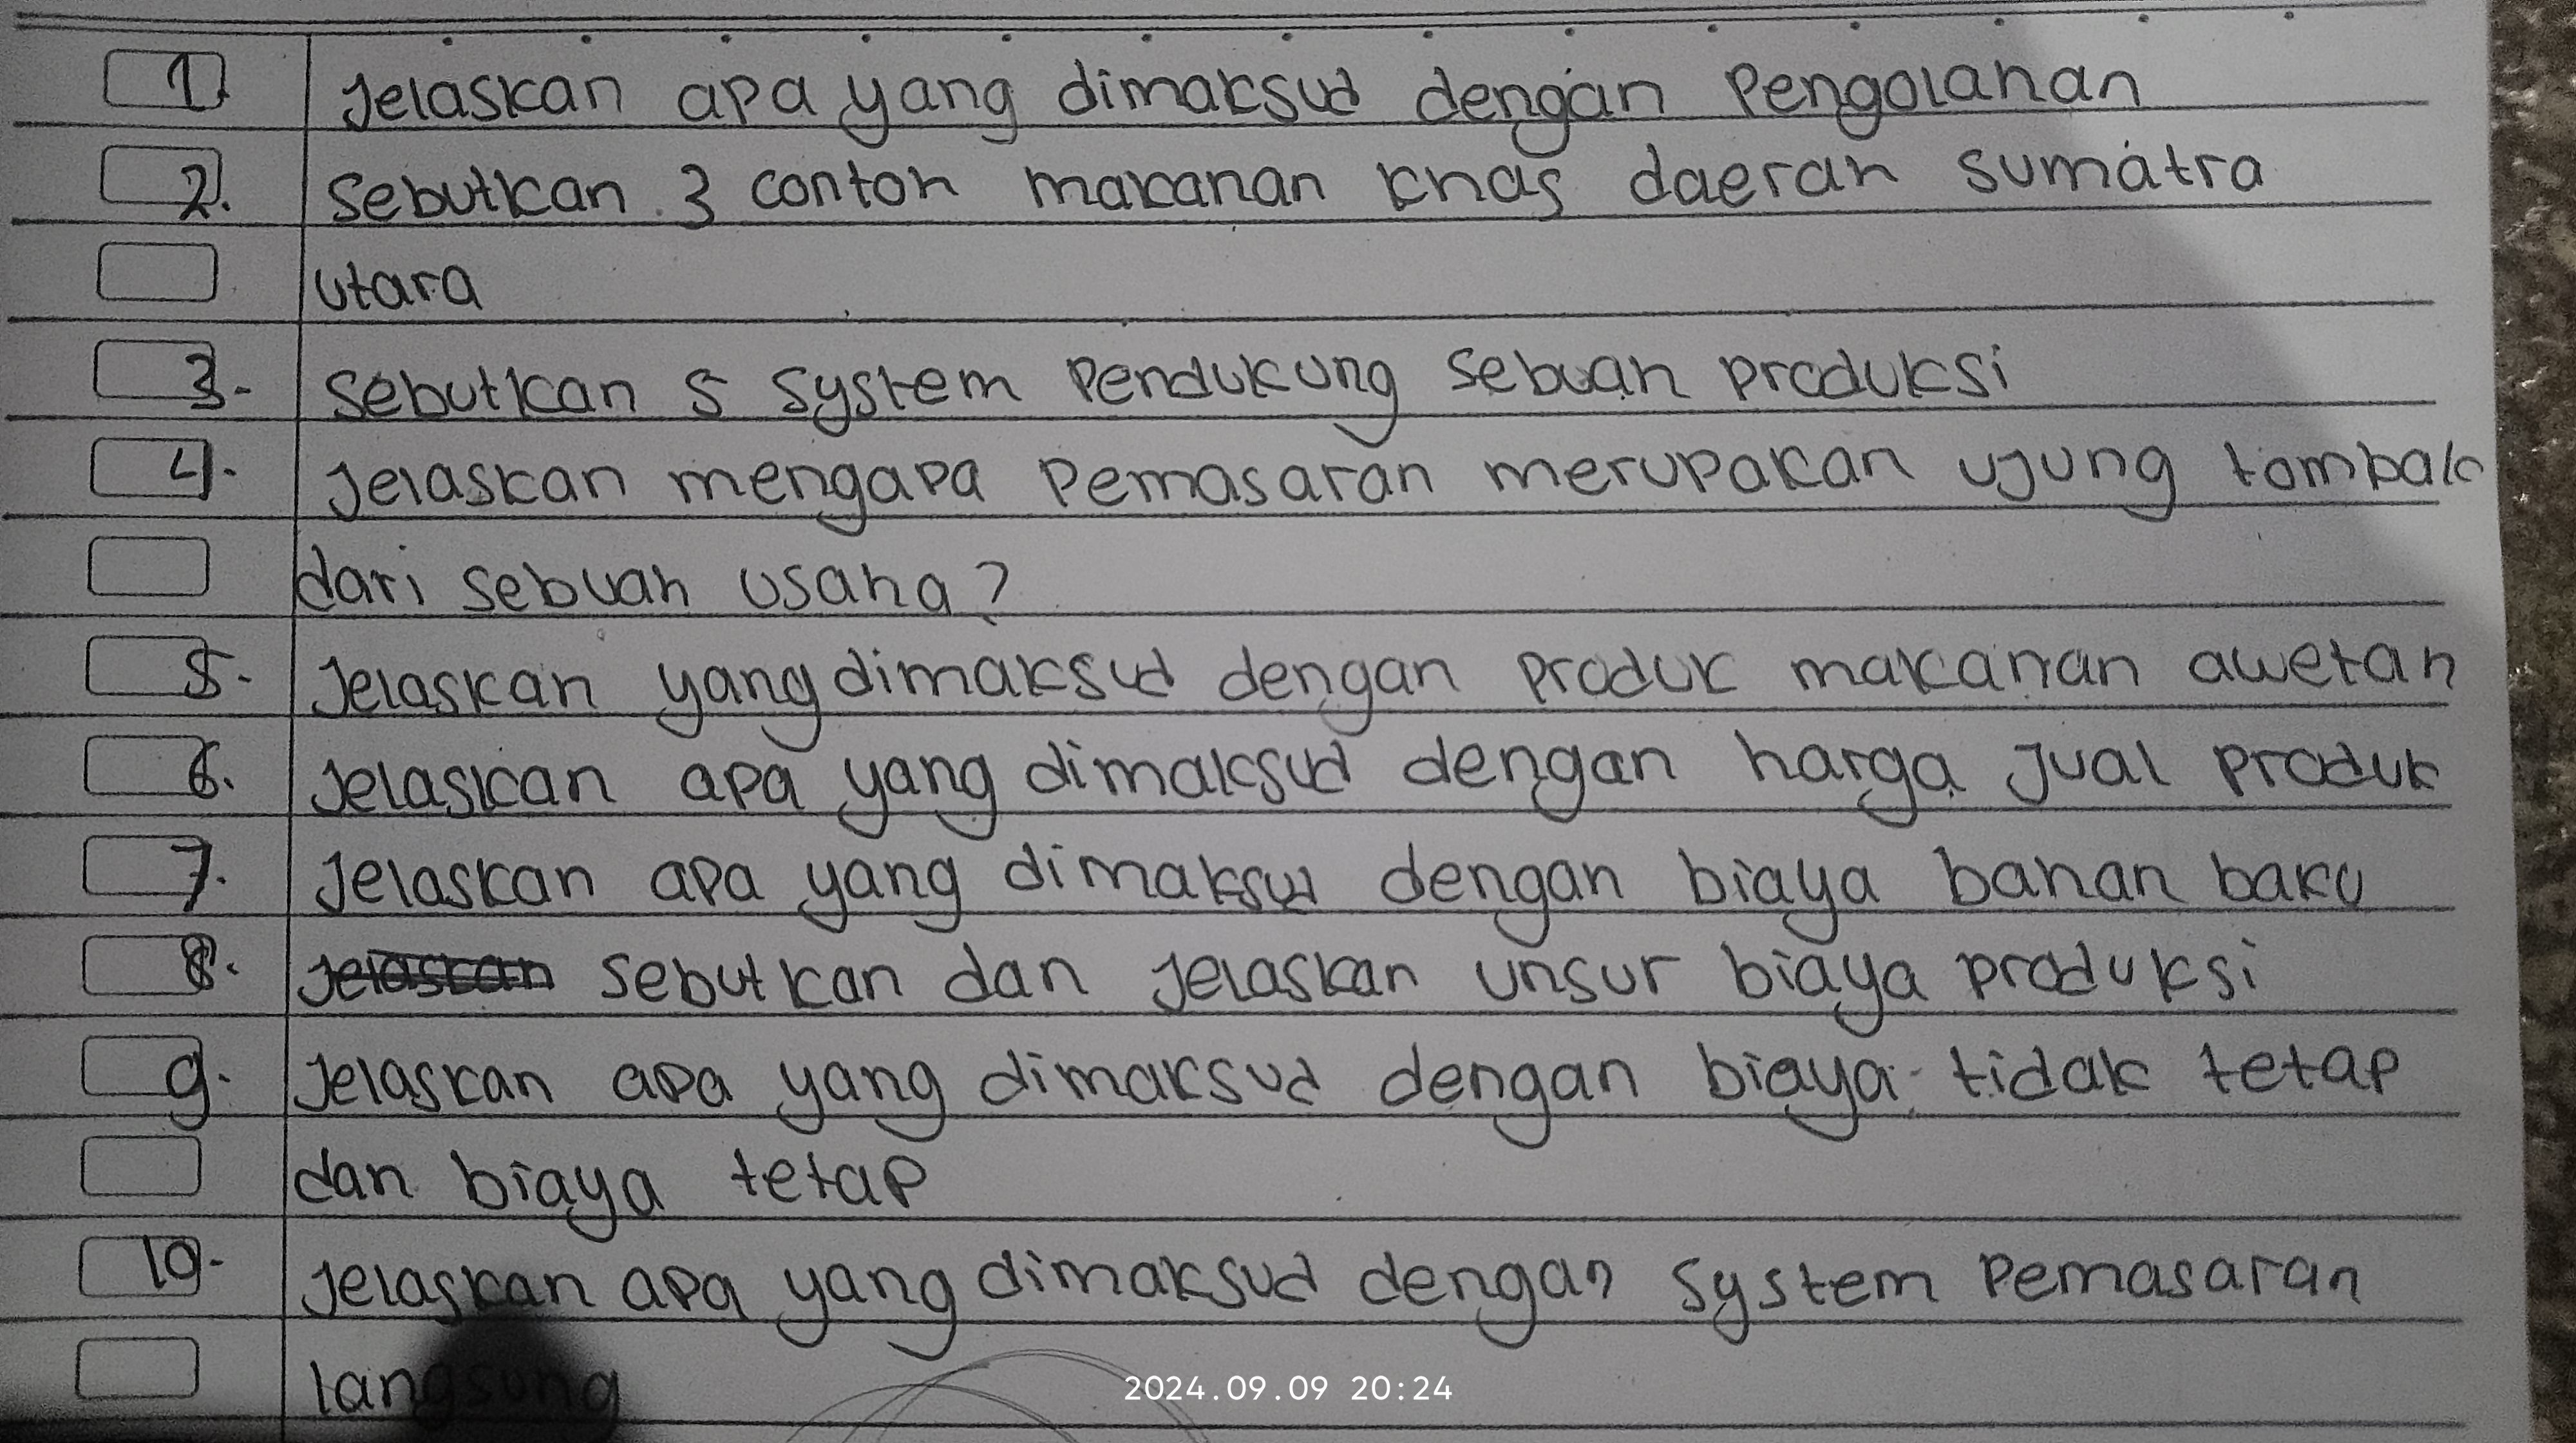 1. Jelaskan apa yang dimaksud dengan Pengolahan
2. Sebutkan 3 contoh makanan khas daerah sumatra
utara
3. Sebutkan 5 system Pendukung sebuah produksi
4. Jelaskan mengapa Pemasaran merupakan ujung tombak
dari sebuah usaha?
5. Jelaskan yang dimaksud dengan produk makanan awetan
6. Jelaskan apa yang dimaksud dengan harga jual produk
7. Jelaskan apa yang dimaksud dengan biaya bahan baku
8. Jelaskan Sebutkan dan Jelaskan unsur biaya produksi
9. Jelaskan apa yang dimaksud dengan biaya tidak tetap
dan biaya tetap
10. Jelaskan apa yang dimaksud dengan System Pemasaran
langsung
2024.09.09 20:24